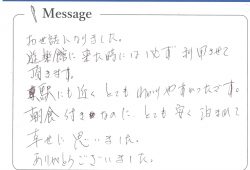 Message
お世話になりました。
遊楽館に来た時には必ず利用させて
頂きます。
駅にも近くとてもわかりやすかったです。
朝食付きなのにとても安く泊まれて
幸せに思いました。
ありがとうございました。